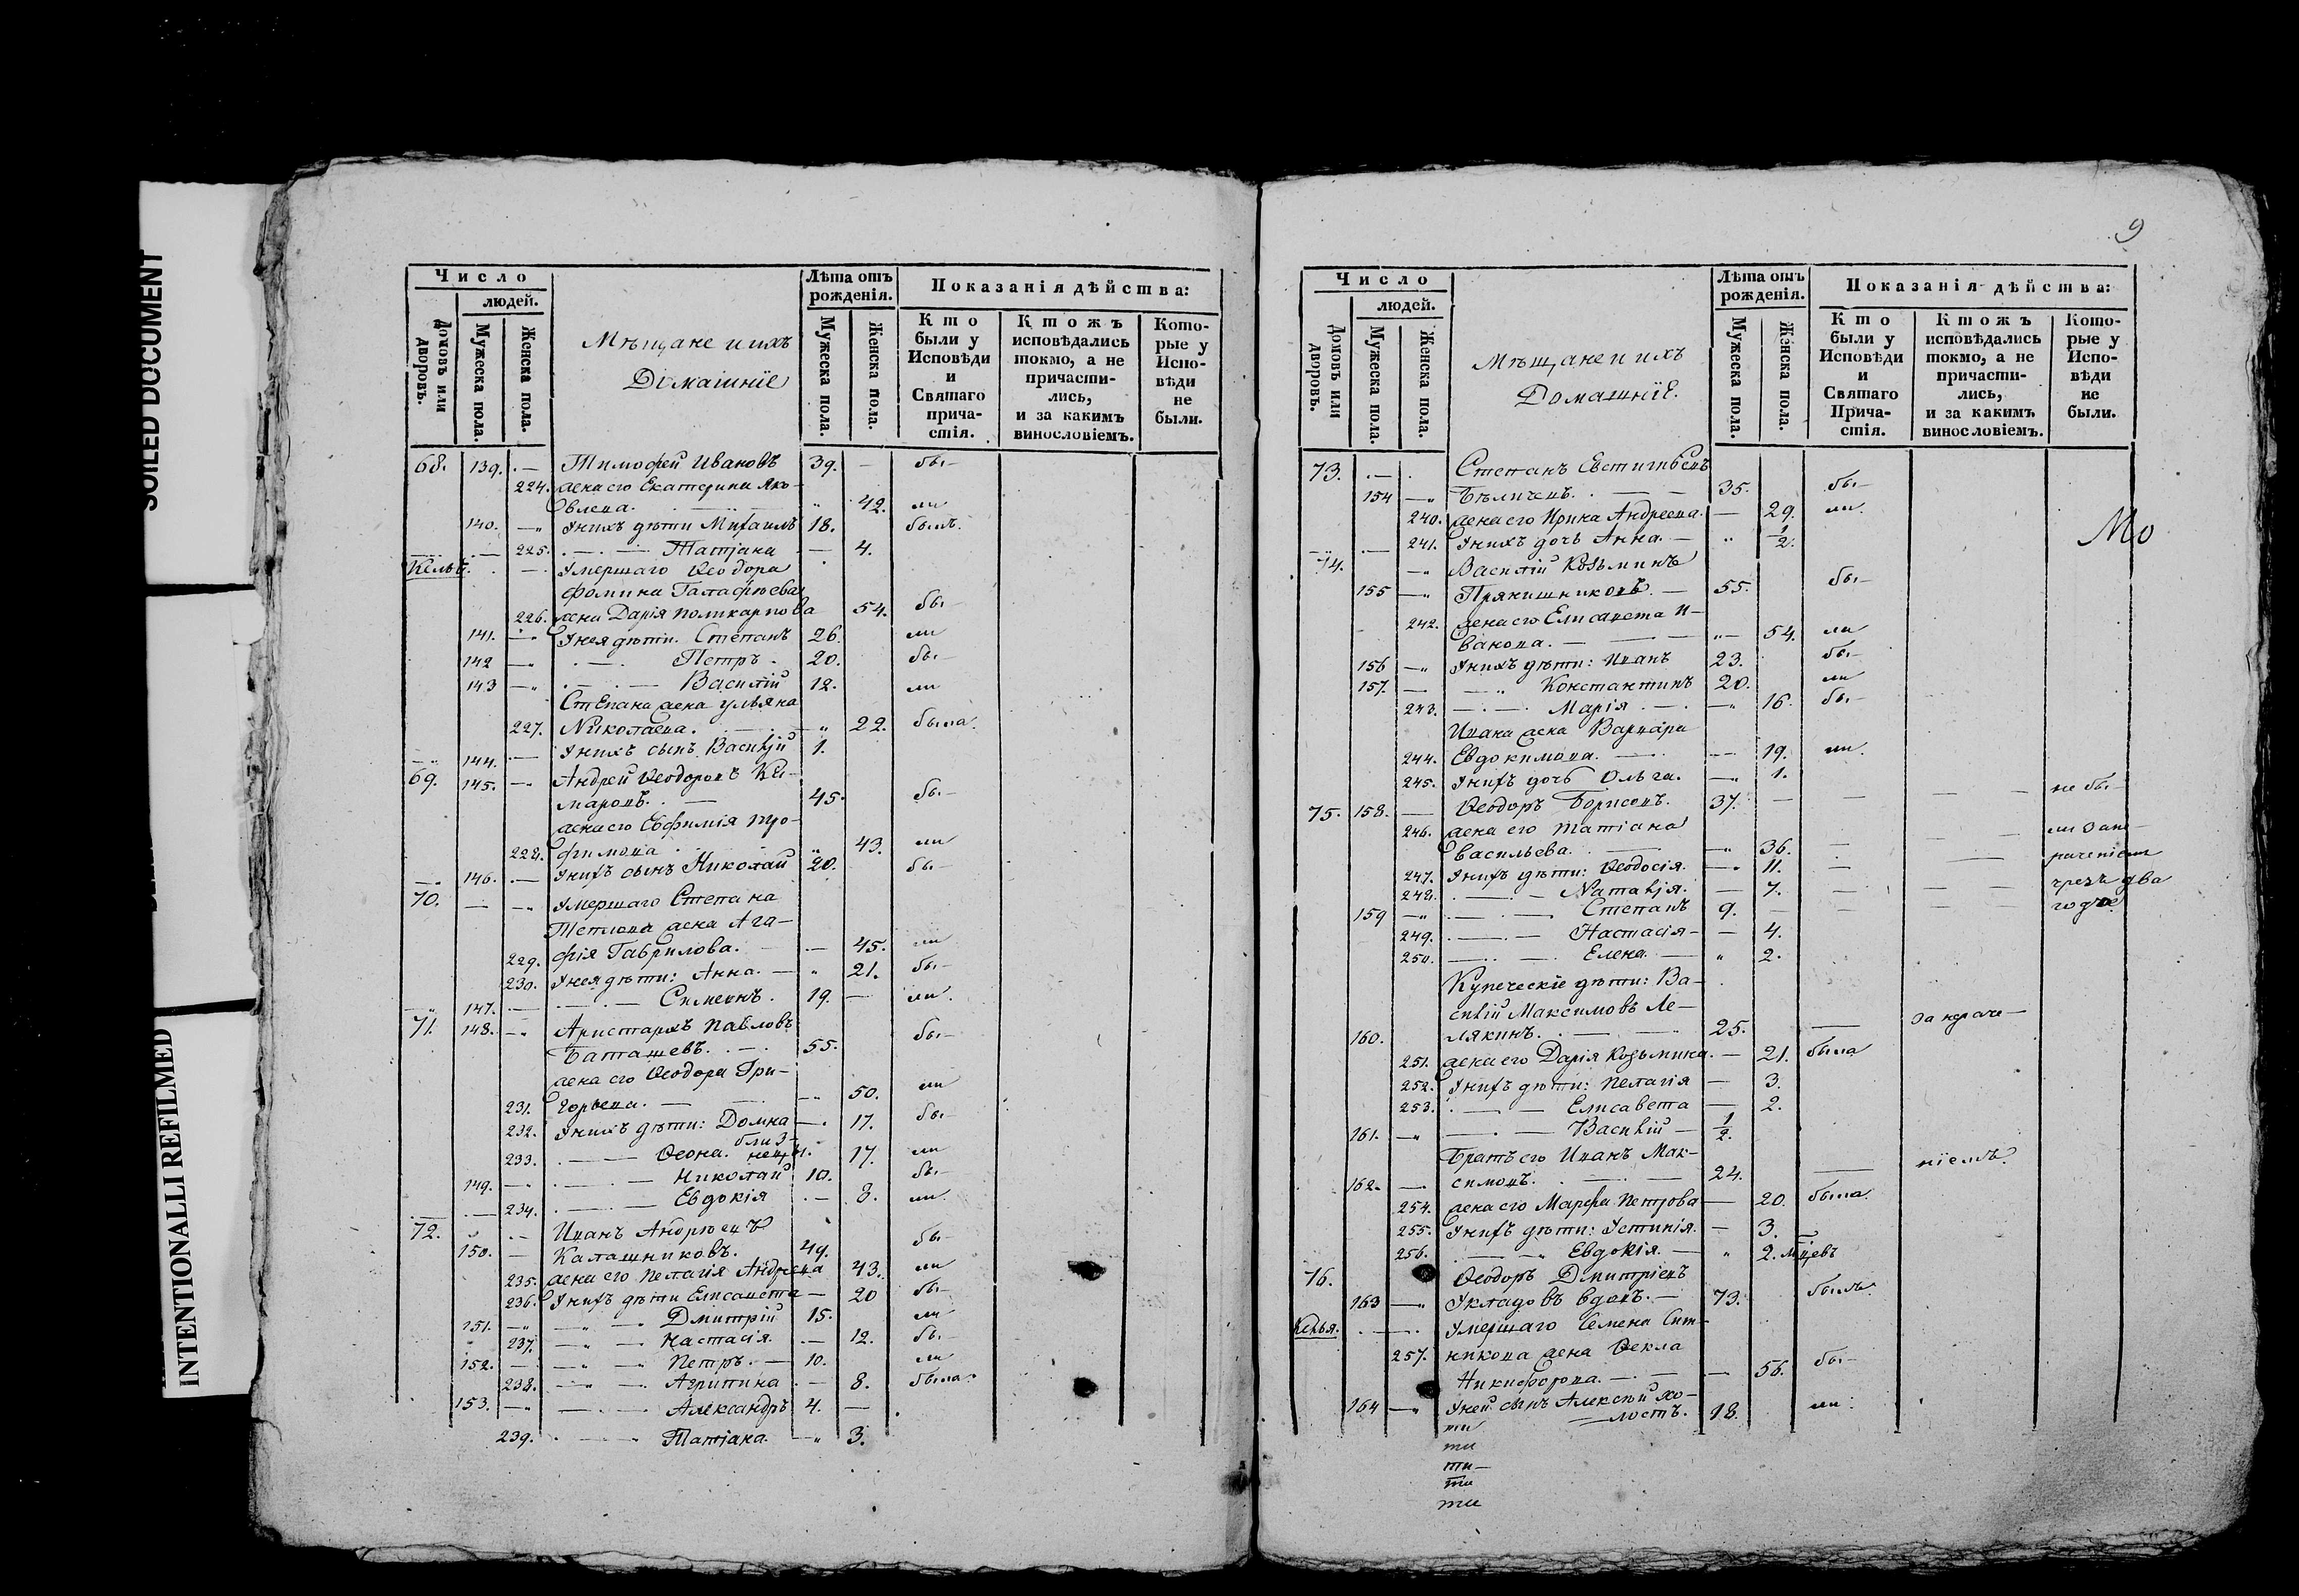 SOILED DOCUMENT
INTENTIONALLI REFILMED
Число
людей.
Домовъ или дворовъ.
Мужеска пола.
Женска пола.
Мѣщане и ихъ
Домашніе
Лѣта отъ рожденія.
Мужеска пола.
Женска пола.
Показанія дѣйства:
Кто были у Исповѣди и Святаго прича-стія.
Ктожъ исповѣдались токмо, а не причасти-лись, и за какимъ винословіемъ.
Кото-рые у Испо-вѣди не были.
68. 139. Тимофей Ивановъ 39. бы-
224. жена его Екатерина Яко-
влева. 42. ли
140. У нихъ дѣти Михаилъ 18. былъ.
225. Татіана 4.
Келья. Умершаго Ѳеодора
Фомина
226. жена Дарія Поликарпова 54. бы-
141. У нея дѣти. Степанъ 26. ли
142 Петръ. 20. бы-
143 Василій 12. ли
Степана жена Ульяна
227. Николаева. 22. была.
144. У нихъ сынъ Василій 1.
69. 145. Андрей Ѳеодоровъ Ки-
маровъ. 45. бы-
жена его Евфимія Тро-
228. фимова 43. ли
146. У нихъ сынъ Николай 20. бы-
70. Умершаго Степана
жена Ага-
229. фія Гаврилова. 45. ли
230. У нея дѣти: Анна. 21. бы-
147. Симеонъ. 19. ли.
71. 148. Аристархъ Павловъ
Баташевъ. 55. бы-
жена его Ѳеодора Гри-
231. горьева. 50. ли
232. У нихъ дѣти: Домна 17. бы-
233. Ѳеона. близ-нецы. 17. ли
149. Николай 10. бы-
234. Евдокія 8. ли.
72. Иванъ Андреевъ
150. Калашниковъ. 49. бы-
235. жена его Пелагія Андреева 43. ли
236. У нихъ дѣти Елисавета 20 бы-
151. Дмитрій 15. ли
237. Настасія. 12. бы-
152. Петръ. 10. ли
238. Агрипина 8. была.
153. Александръ 4.
239. Татіана. 3.
9
Число
людей.
Домовъ или дворовъ.
Мужеска пола.
Женска пола.
Мѣщане и ихъ
Домашніе.
Лѣта отъ рожденія.
Мужеска пола.
Женска пола.
Показанія дѣйства:
Кто были у Исповѣди и Святаго Прича-стія.
Ктожъ исповѣдались токмо, а не причасти-лись, и за какимъ винословіемъ.
Кото-рые у Испо-вѣди не были.
73. Степанъ Евстигнѣевъ
154 Бѣличевъ. 35. бы-
240. жена его Ирина Андреева. 29. ли.
241. У нихъ дочь Анна. 1/2.
Мо
74. Василій Козьминъ
155 Прянишниковъ. 55. бы-
242. жена его Елисавета И-
ванова. 54. ли
156 У нихъ дѣти: Иванъ 23. бы-
157. Константинъ 20. ли
243. Марія 16. бы-
Ивана жена Варвара
244. Евдокимова. 19. ли.
245. У нихъ дочь Ольга. 1.
75. 158. Ѳеодоръ Борисовъ. 37. не бы-
246. жена его Татіана
Васильева. 36. ли за не-
247. У нихъ дѣти: Ѳеодосія. 11. раченіем
248. Наталія. 7. чрезъ два
159 Степанъ 9. года
249. Настасія 4.
250. Елена. 2.
Купеческіе дѣти: Ва-
силій Максимовъ Ле-
160. лякинъ. 25. за нераче-
251. жена его Дарія Козьмина. 21. была
252. У нихъ дѣти: Пелагія 3.
253. Елисавета 2.
161. Василій 1/2.
Братъ его Иванъ Мак-
162. симовъ. 24. ніемъ.
254. жена его Марфа Петрова 20. была.
255. У нихъ дѣти: Устинія. 3.
256. Евдокія. 2. мцевъ
76. Ѳеодоръ Дмитріевъ
163 Укладовъ вдовъ. 73. былъ.
Келья. Умершаго Семена Сит-
257. никова жена Ѳекла
Никифорова. 56. бы-
164 У ней сынъ Алексѣй хо-
лостъ. 18. ли.
ти
ти
ти
ти
ти